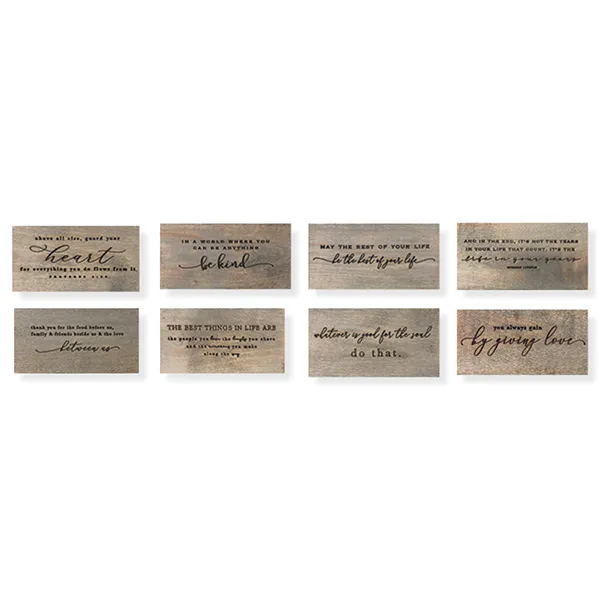 above all else, guard your
heart
for everything you do flows from it.
PROVERBS 4:23
IN A WORLD WHERE YOU
CAN BE ANYTHING
be kind
MAY THE REST OF YOUR LIFE
be the best of your life
AND IN THE END, IT'S NOT THE YEARS
IN YOUR LIFE THAT COUNT, IT'S THE
life in your years
ABRAHAM LINCOLN
thank you for the food before us,
family & friends beside us & the love
between us
THE BEST THINGS IN LIFE ARE
the people you love the laughs you share
and the memories you make
along the way
whatever is good for the soul
do that.
you always gain
by giving love